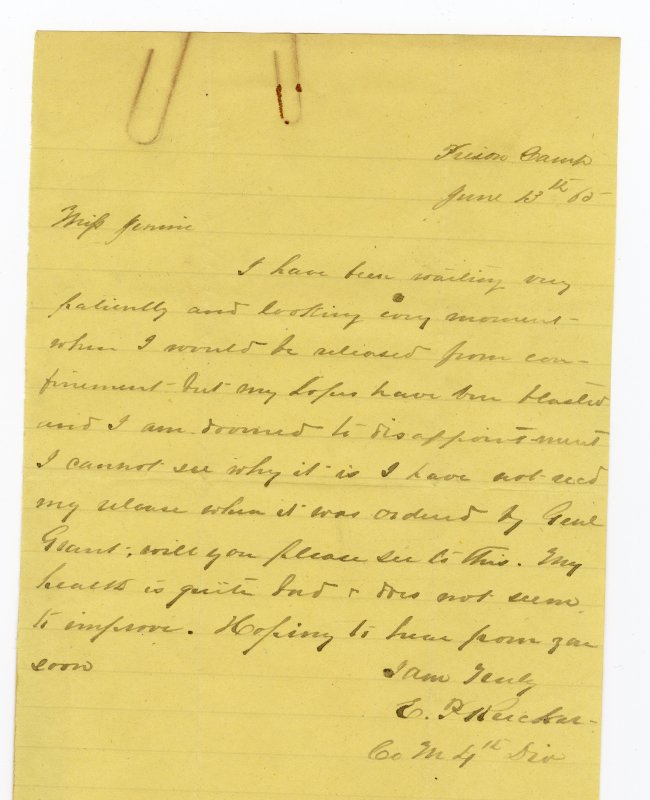 Prison Camp
June 13th 65
Miss Jennie
I have been waiting very
patiently and looking every moment
when I would be released from con-
finement but my hopes have been blasted
and I am doomed to disappointment
I cannot see why it is I have not recd
my release when it was ordered by Genl
Grant, will you please see to this. My
health is quite bad & does not seem
to improve. Hoping to hear from you
soon
I am Truly
E. P.
Co M 4th Div